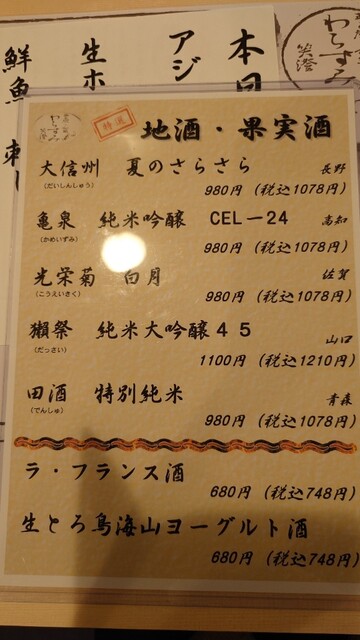 本日
アジ
生ホ
鮮魚 刺し
わらずみ
笑澄
特選
地酒・果実酒
大信州 夏のさらさら 長野
(だいしんしゅう)
980円 (税込1078円)
亀泉 純米吟醸 CEL－24 高知
(かめいずみ)
980円 (税込1078円)
光栄菊 白月 佐賀
(こうえいきく)
980円 (税込1078円)
獺祭 純米大吟醸45 山口
(だっさい)
1100円 (税込1210円)
田酒 特別純米 青森
(でんしゅ)
980円 (税込1078円)
ラ・フランス酒
680円 (税込748円)
生とろ鳥海山ヨーグルト酒
680円 (税込748円)